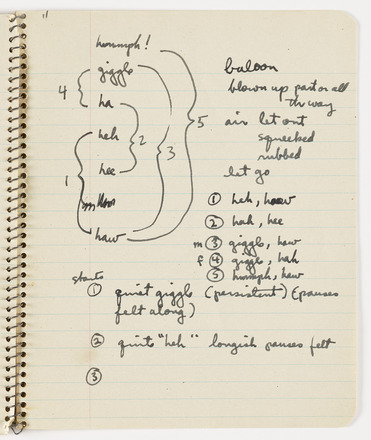 hummph!
giggle
4
ha
heh
2
5
3
hee
1
haw
baloon
blown up part or all
the way
air let out
squeeked
rubbed
let go
① heh, haw
② hah, hee
m ③ giggle, haw
f ④ giggle, hah
⑤ hummph, haw
starts
① quiet giggle (persistent) (pauses
felt along)
② quite "heh" longish pauses felt
③